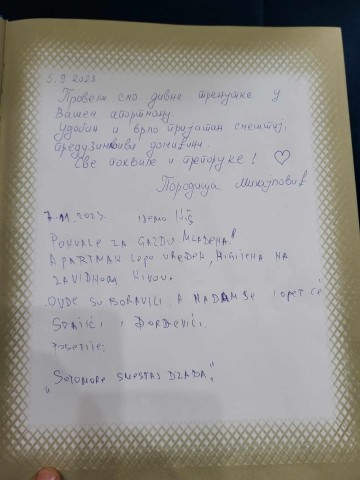 5.9.2023
Провели смо дивне тренутке у
Вашем апартману
Удобан и врло пријатан смештај,
предузимљиви домаћини.
Све похвале и препоруке! ♡
Породица Михајловић
7.11.2023.
POHVALE ZA GAZDU MLAĐENA!
APARTMAN LEPO UREĐEN, HIGIJENA NA
ZAVIDNOM NIVOU.
OVDE SU BORAVILI, A NADAM SE I OPET ĆE
STAJIĆI I ĐORĐEVIĆI.
"SOTOMORE SMEŠTAJ